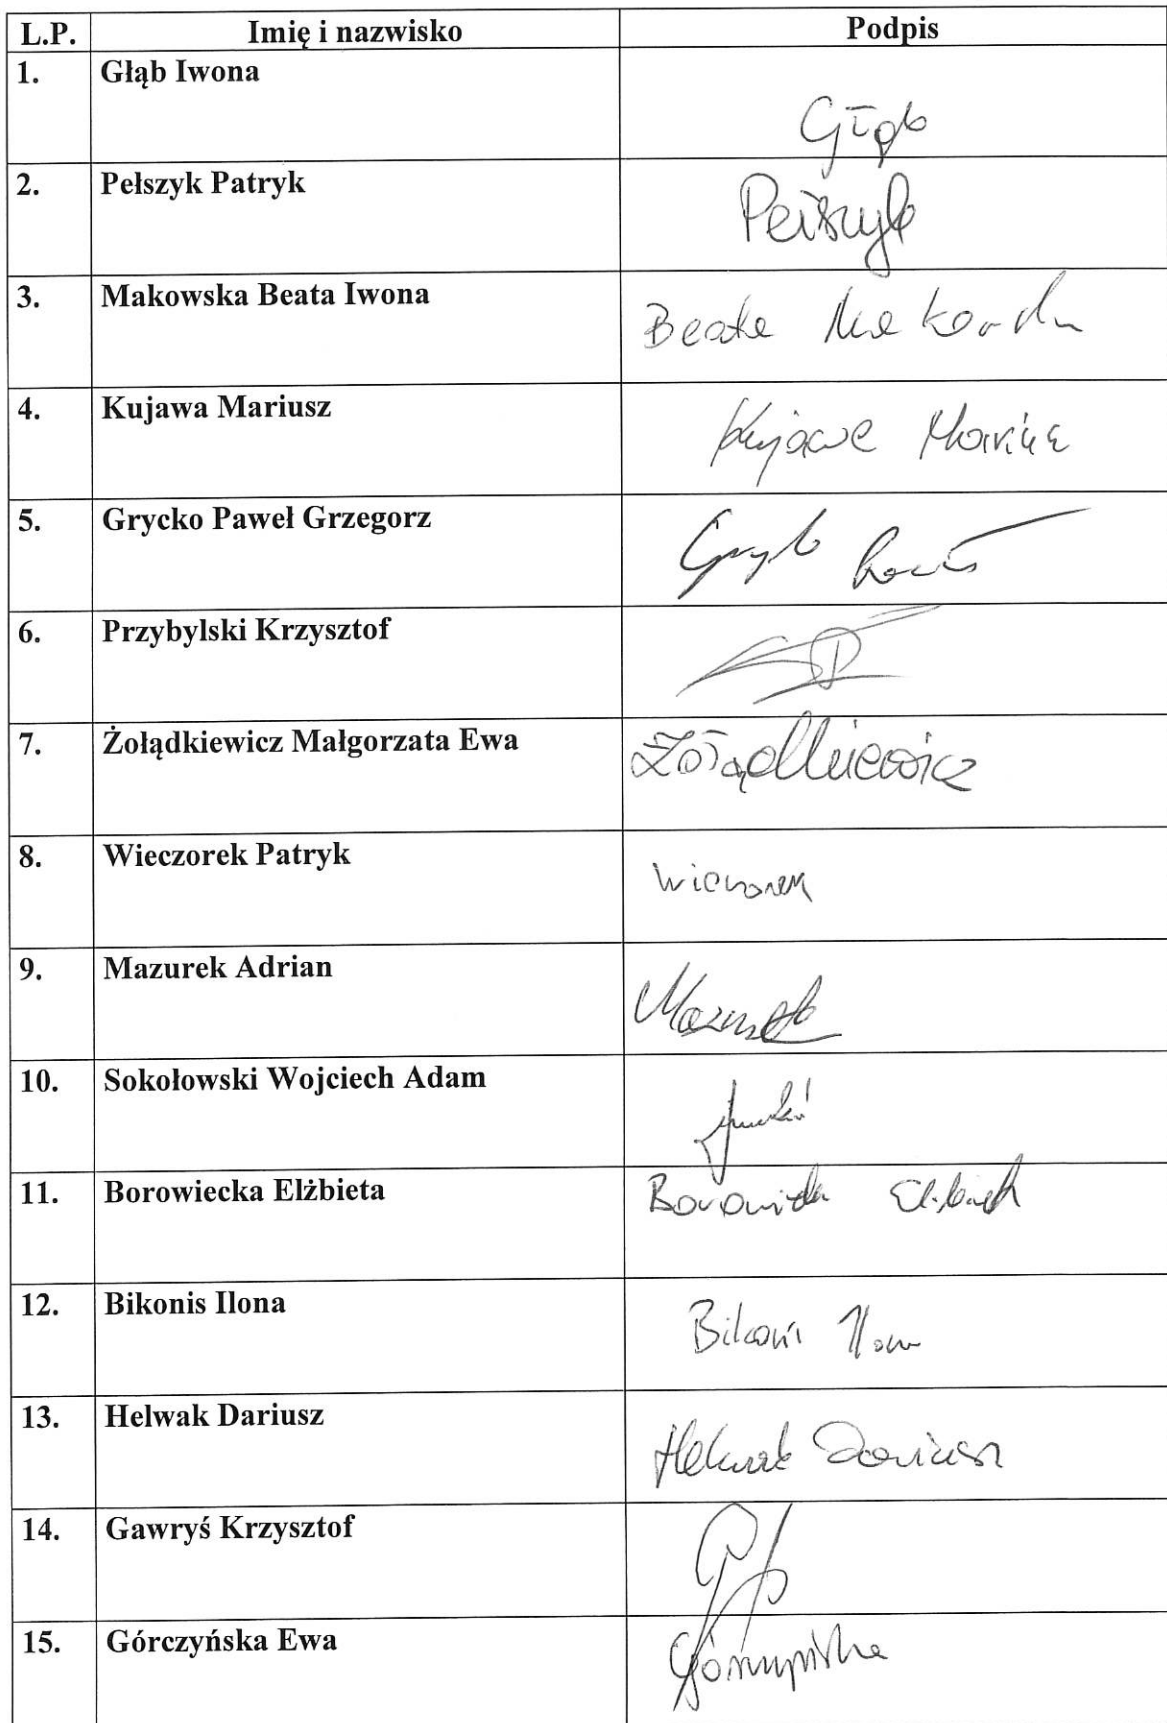 L.P. Imię i nazwisko Podpis
1. Głąb Iwona
Głąb
2. Pełszyk Patryk
Pełszyk
3. Makowska Beata Iwona
Beata
4. Kujawa Mariusz
Kujawa Mariusz
5. Grycko Paweł Grzegorz
6. Przybylski Krzysztof
7. Żołądkiewicz Małgorzata Ewa
Żołądkiewicz
8. Wieczorek Patryk
Wieczorek
9. Mazurek Adrian
Mazurek
10. Sokołowski Wojciech Adam
11. Borowiecka Elżbieta
Borowiecka Elżbieta
12. Bikonis Ilona
Bikonis Ilona
13. Helwak Dariusz
Helwak Dariusz
14. Gawryś Krzysztof
15. Górczyńska Ewa
Górczyńska